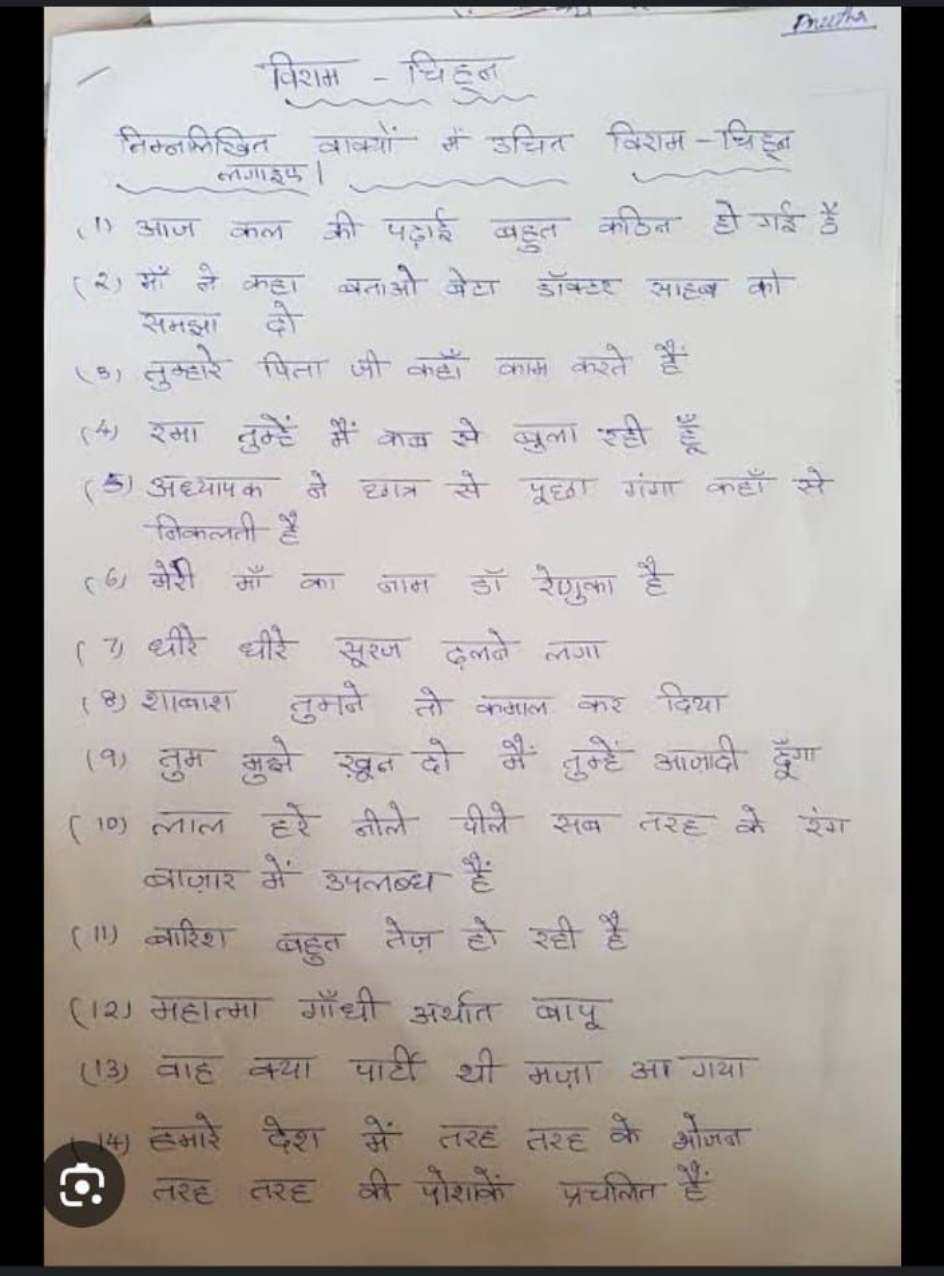 Preetha
विराम - चिह्न
निम्नलिखित वाक्यों में उचित विराम - चिह्न
लगाइए।
(1) आज कल की पढ़ाई बहुत कठिन हो गई है
(2) माँ ने कहा बताओ बेटा डॉक्टर साहब को
समझा दो
(3) तुम्हारे पिता जी कहाँ काम करते हैं
(4) रमा तुम्हें मैं कब से बुला रही हूँ
(5) अध्यापक ने छात्र से पूछा गंगा कहाँ से
निकलती है
(6) मेरी माँ का नाम डॉ रेणुका है
(7) धीरे धीरे सूरज ढ़लने लगा
(8) शाबाश तुमने तो कमाल कर दिया
(9) तुम मुझे ख़ून दो मैं तुम्हें आज़ादी दूँगा
(10) लाल हरे नीले पीले सब तरह के रंग
बाज़ार में उपलब्ध हैं
(11) बारिश बहुत तेज़ हो रही है
(12) महात्मा गाँधी अर्थात बापू
(13) वाह क्या पार्टी थी मज़ा आ गया
(14) हमारे देश में तरह तरह के भोजन
तरह तरह की पोशाकें प्रचलित हैं